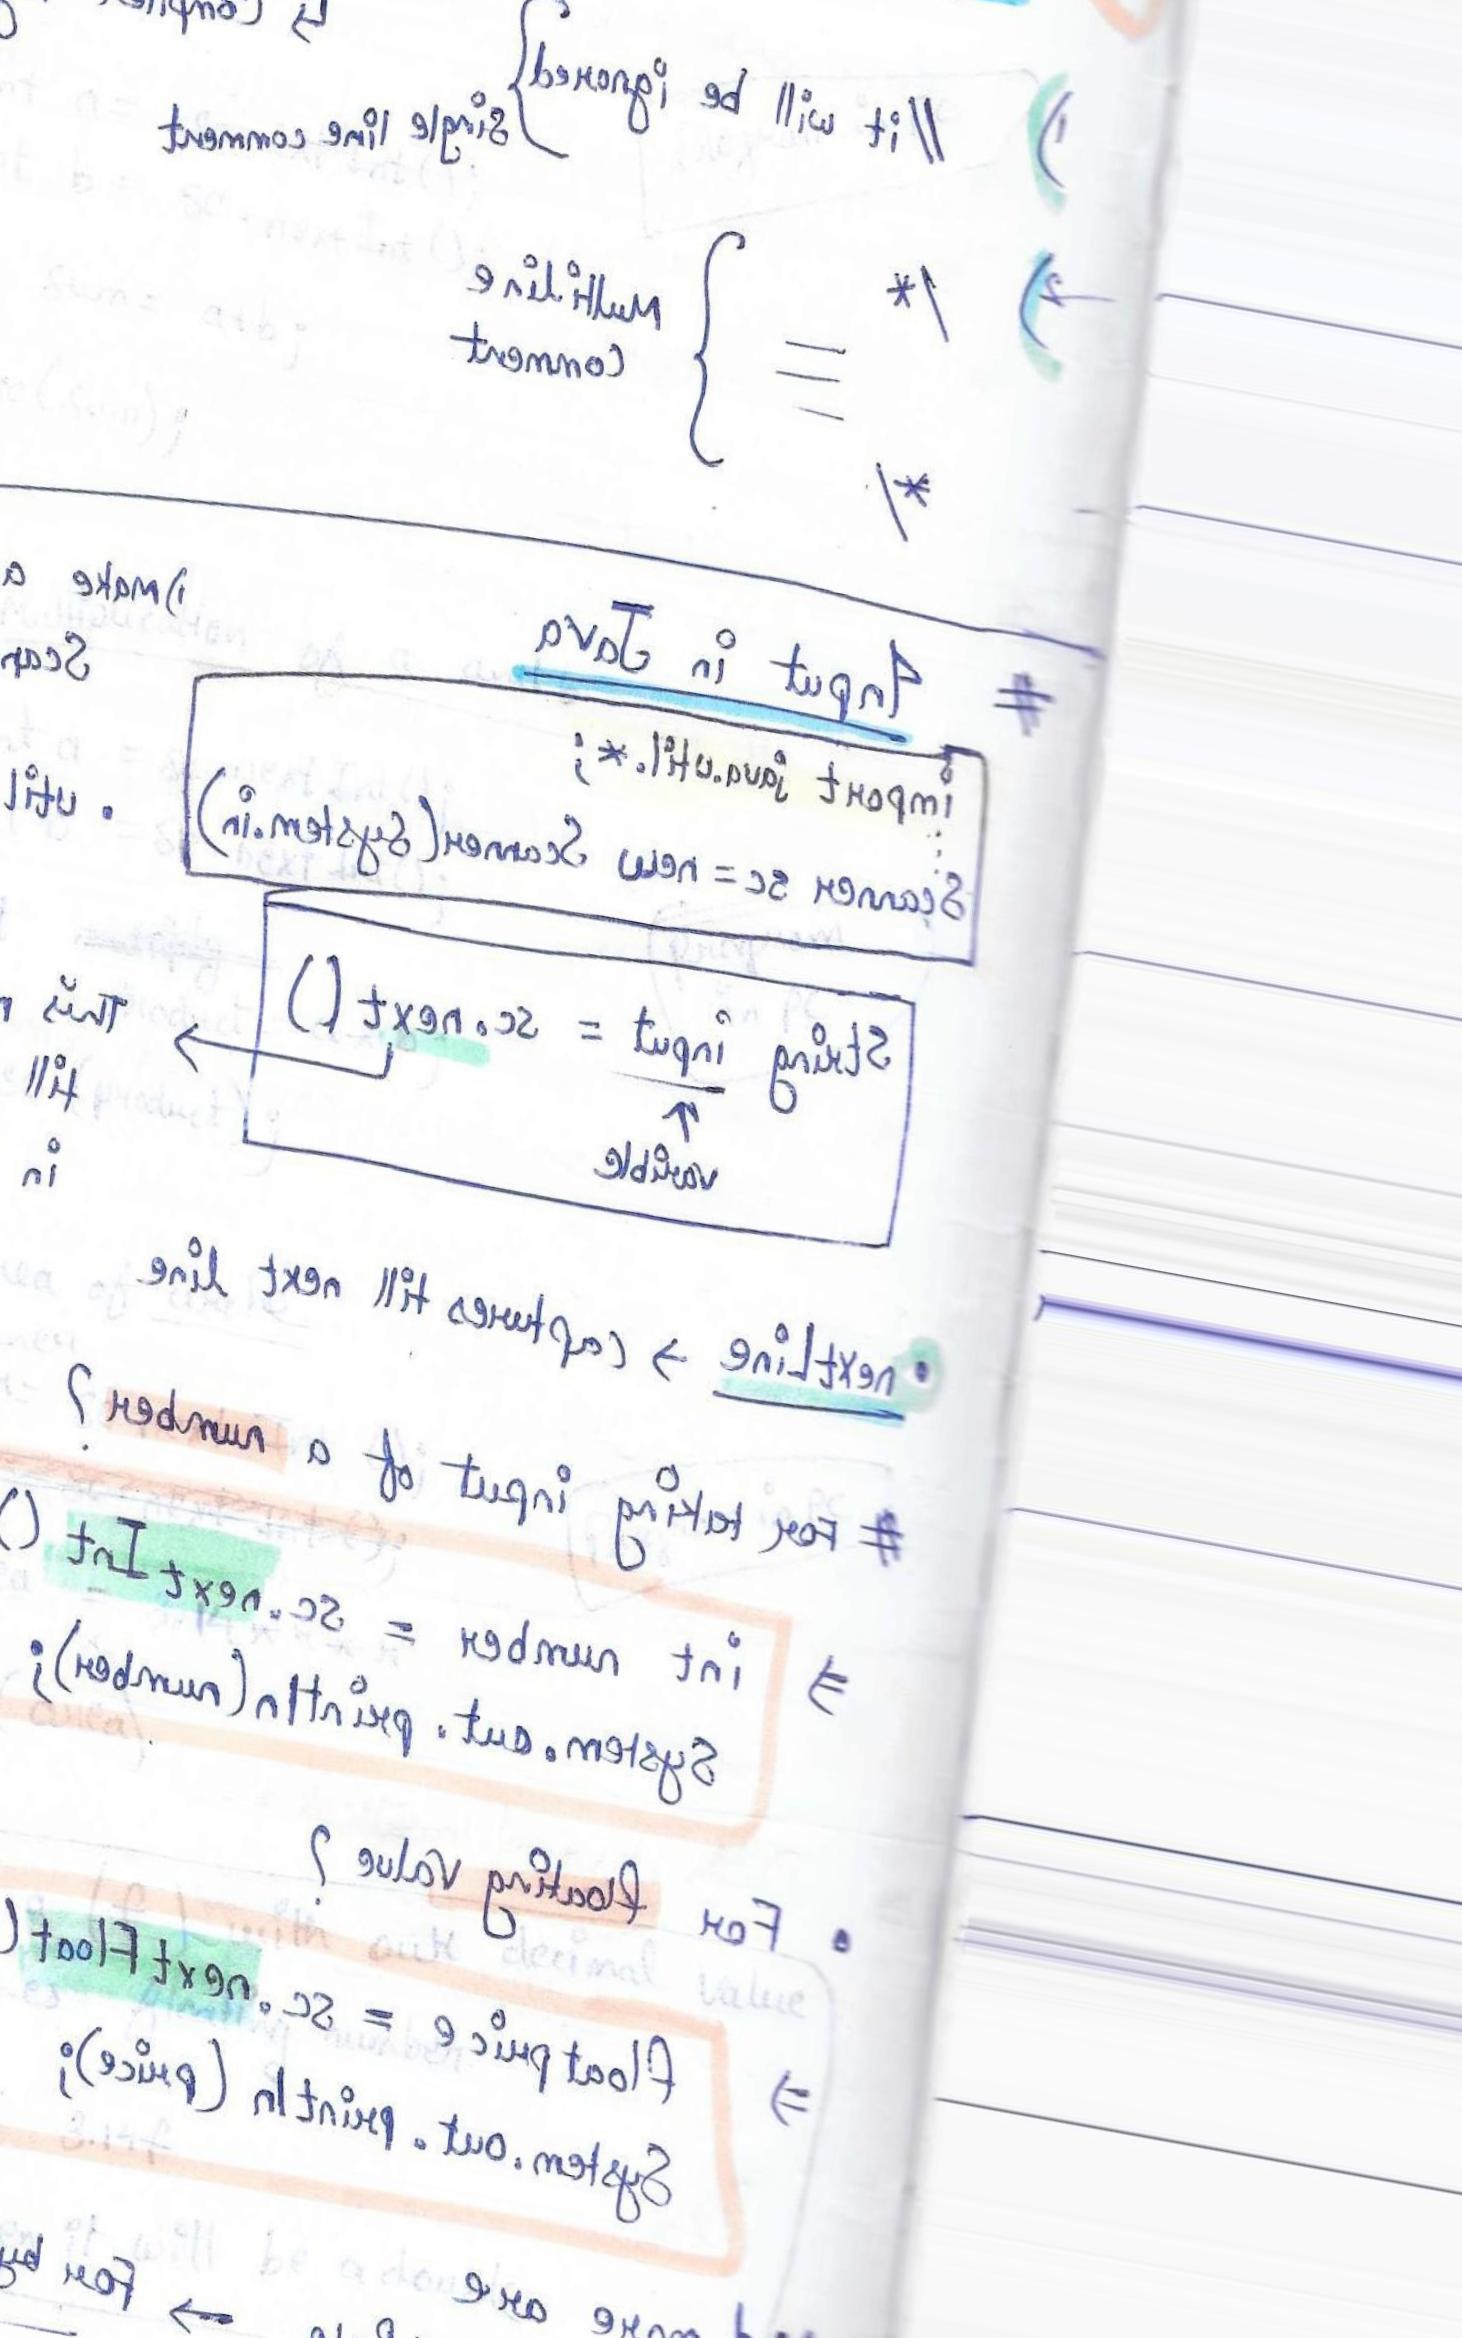 ↳ Compiler
1) //it will be ignored } single line comment
2) /* } Multiline
comment
*/
# Input in Java
1) make a
Scan
import java.util.*;
Scanner sc = new Scanner(System.in)
• util
String input = sc.next() → This
↑ till
varible in
• nextLine → captures till next line
# For taking input of a number?
⇒ int number = sc.nextInt()
System.out.println(number);
• For floating value?
⇒ float price = sc.nextFloat(
System.out.println(price);
more are
→ For by